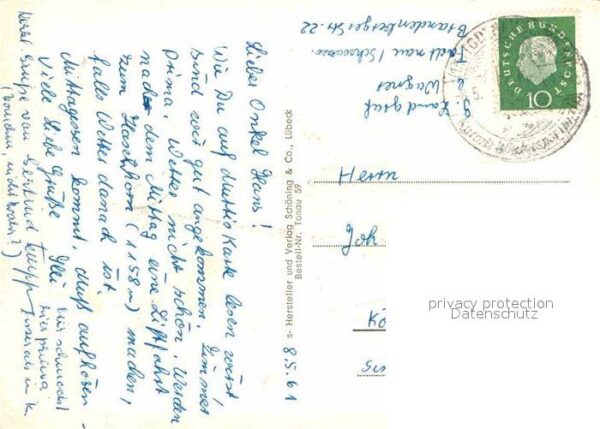 8.5.61
Lieber Onkel Hans!
Wie Du auf Muttis Karte lesen wirst,
sind wir gut angekommen. Zimmer
prima, Wetter nicht schön. Werden
nach dem Mittag eine Liftfahrt
zum Hasenhorn (1158 m) machen,
falls Wetter danach ist.
Mittagessen kommt, muß aufhören.
Viele liebe Grüße
Hier schmeckt
hier prima
Nette Grüße von Gertrud
(komisch, nicht wahr?)
s- Hersteller und Verlag Schöning & Co., Lübeck
Bestell-Nr. Tonau 59
Landgraf
Wagner
Todtnau / Schwarzw.
Brandenberger Str. 22
DEUTSCHE BUNDESPOST
10
Herrn
Joh
Kö
privacy protection
Datenschutz